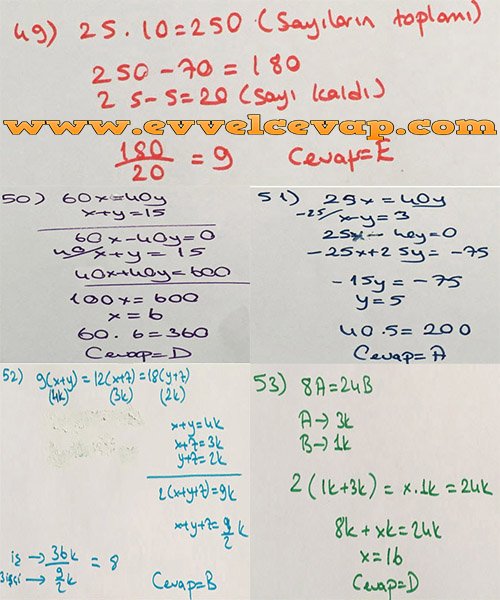 49) 25.10=250 (Sayıların toplamı)
250-70=180
25-5=20 (Sayı kaldı)
www.evvelcevap.com
180/20 = 9 Cevap=E
50) 60x=40y
x+y=15
60x-40y=0
40/ x+y=15
40x+40y=600
100x=600
x=6
60.6=360
Cevap=D
51) 25x=40y
-25/ x-y=3
25x-40y=0
-25x+25y=-75
-15y=-75
y=5
40.5=200
Cevap=A
52) 9(x+y)=12(x+z)=18(y+z)
(4k) (3k) (2k)
x+y=4k
x+z=3k
y+z=2k
2(x+y+z)=9k
x+y+z=9/2 k
iş → 36k
3 işçi → 9/2 k = 8
Cevap=B
53) 8A=24B
A→3k
B→1k
2(1k+3k)=x.1k=24k
8k+xk=24k
x=16
Cevap=D